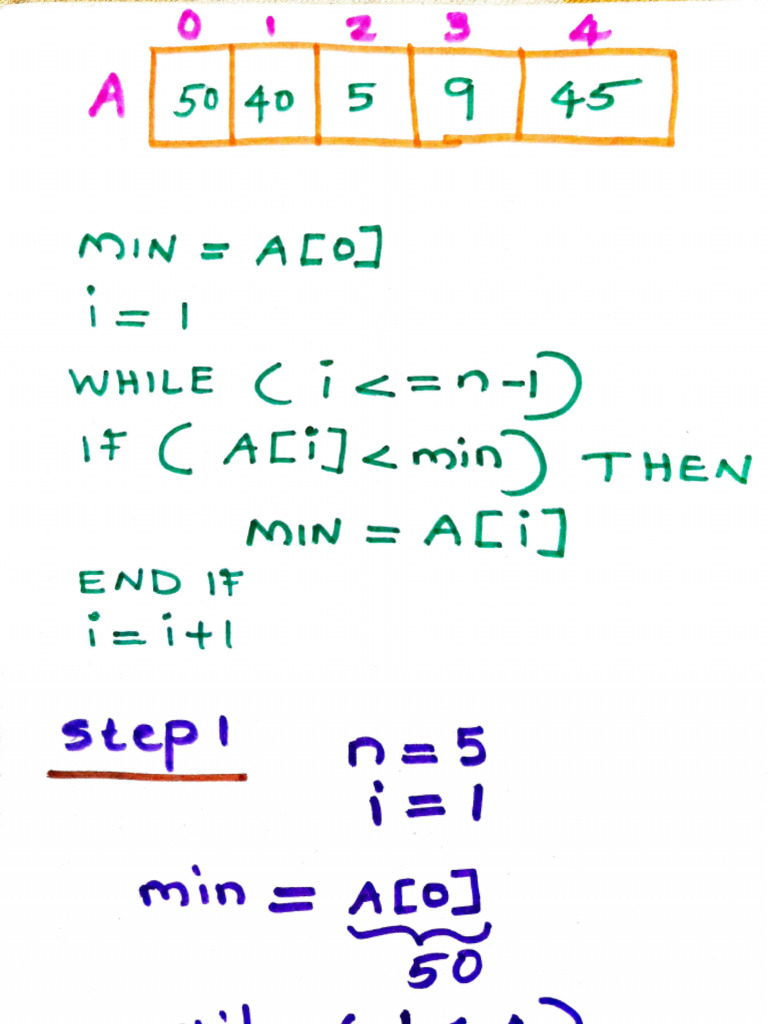 0 1 2 3 4
A 50 40 5 9 45
MIN = A[0]
i = 1
WHILE ( i <= n-1)
IF ( A[i] < min) THEN
MIN = A[i]
END IF
i = i+1
step 1
n = 5
i = 1
min = A[0]
50